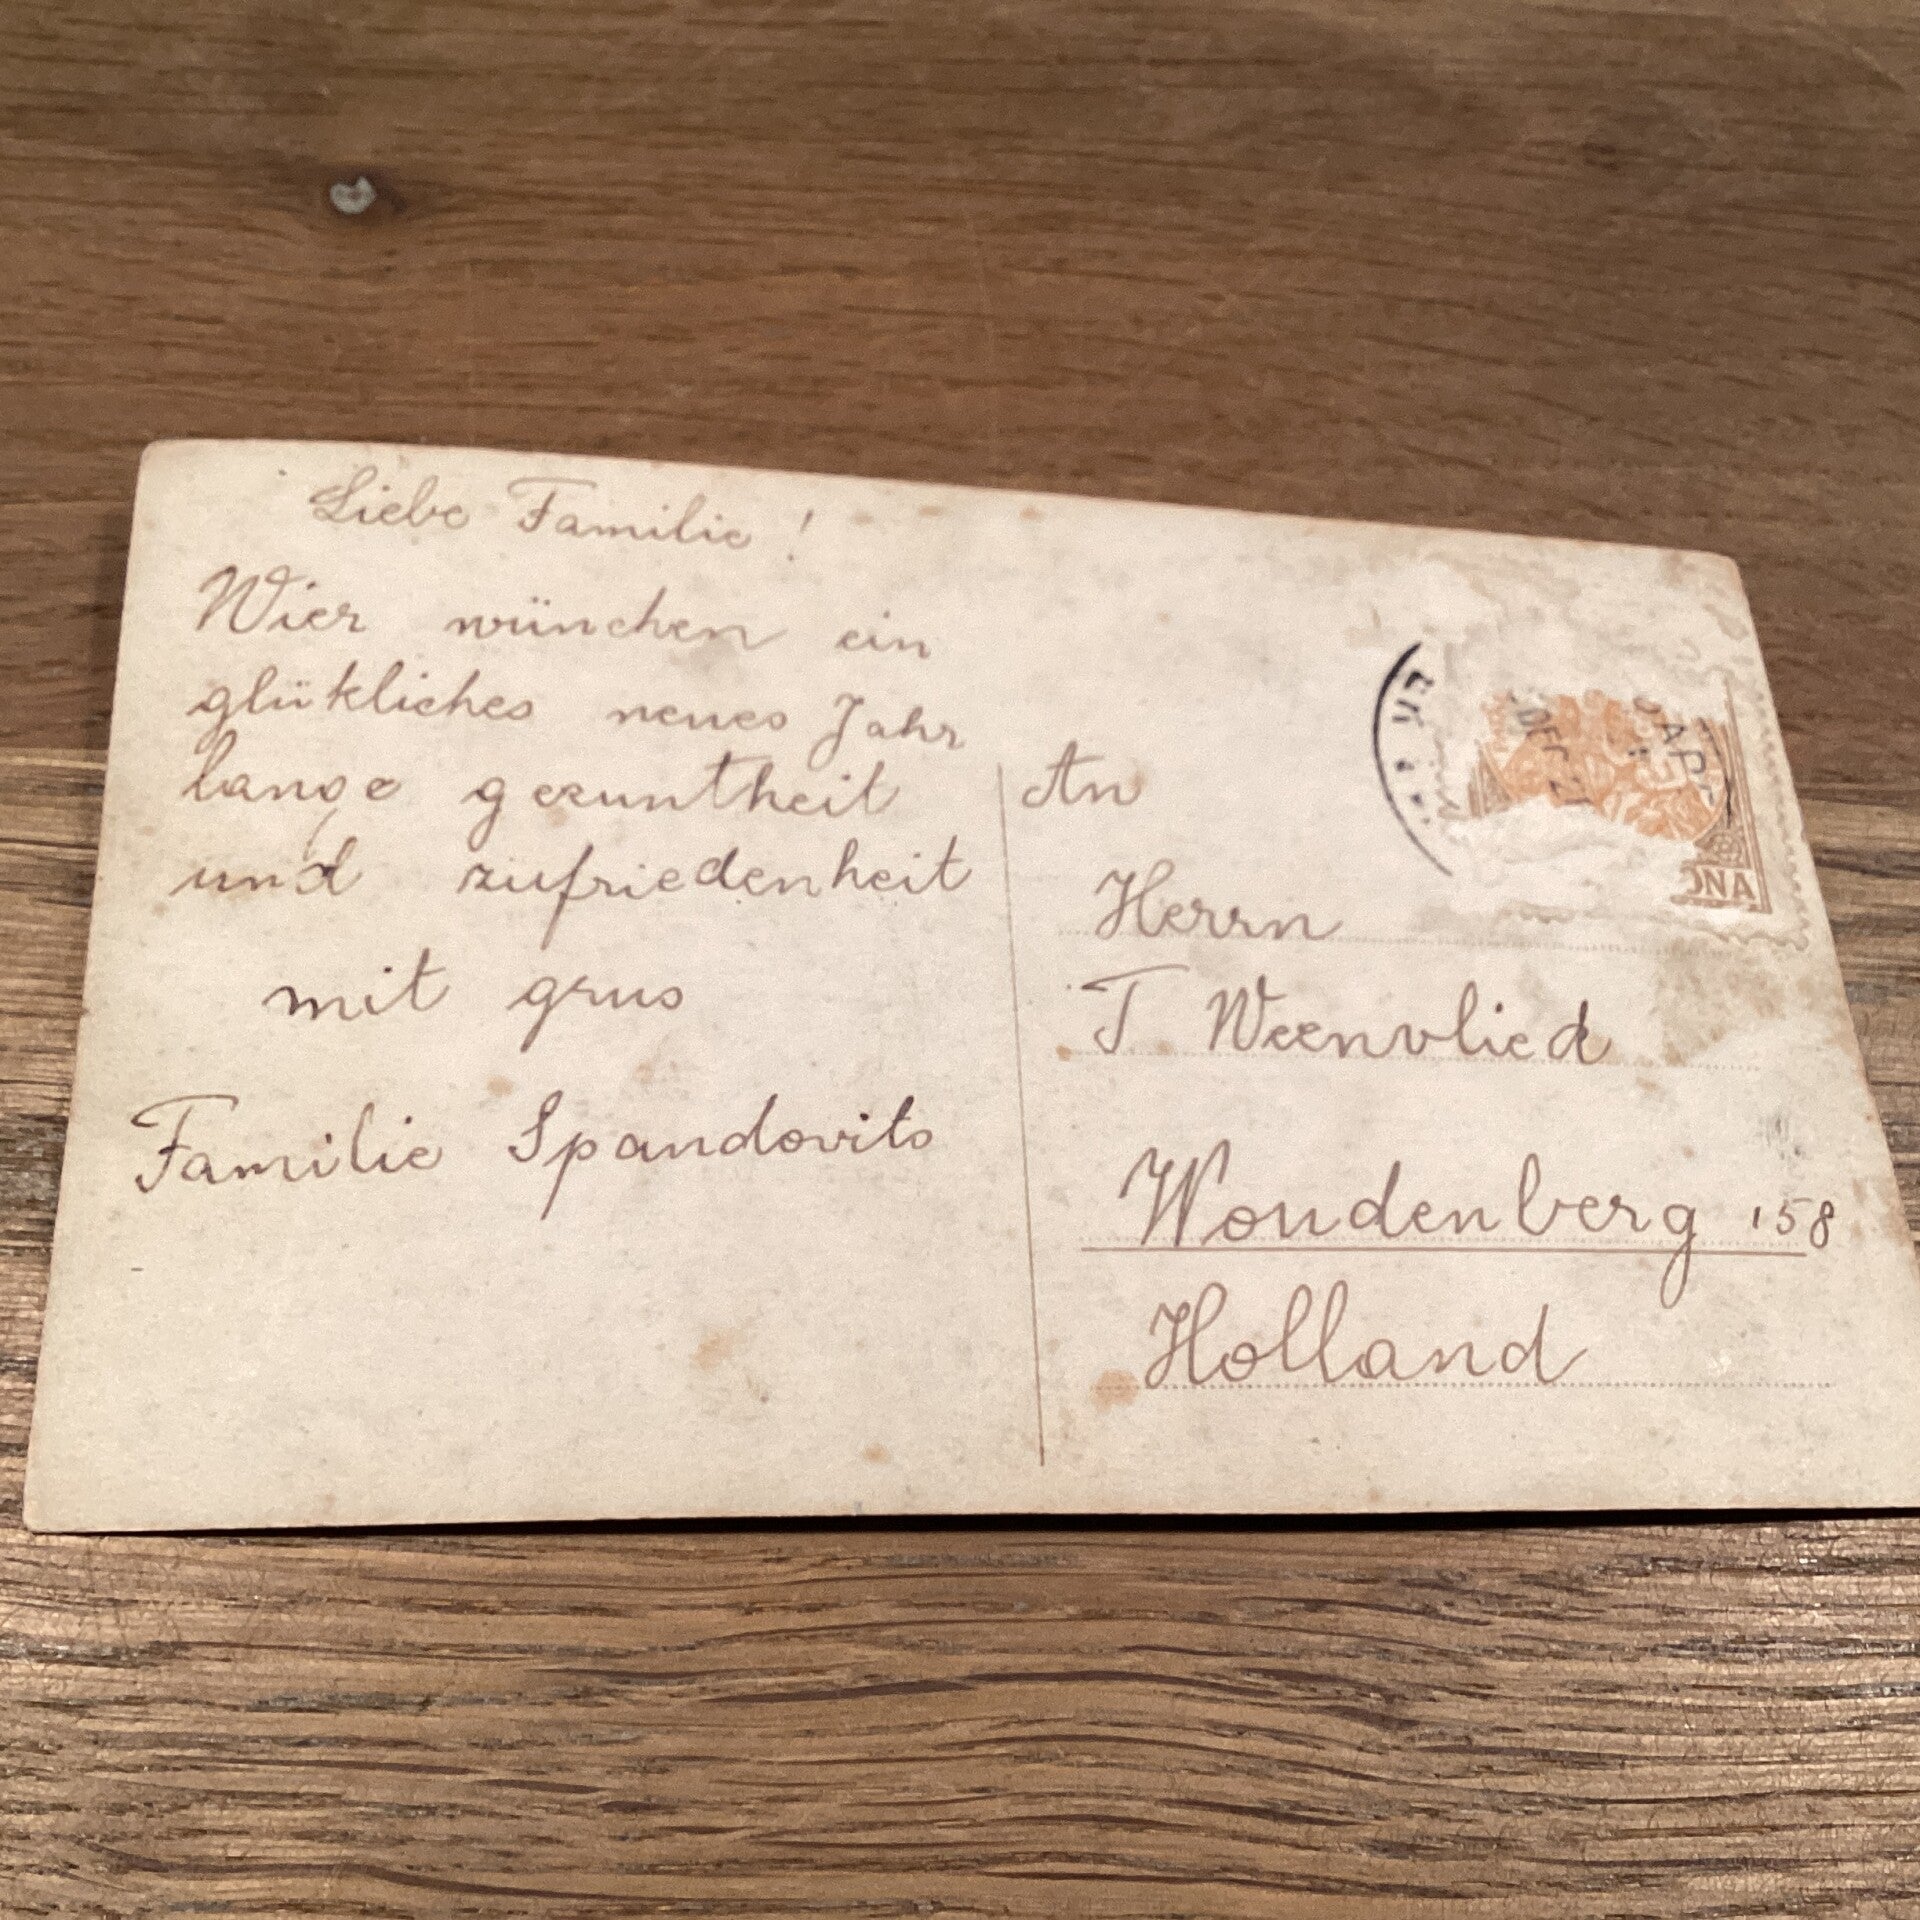 Liebe Familie!
Wier wünchen ein
glükliches neues Jahr
lange gesuntheit
und zufriedenheit
mit grus
Familie Spandovits
An
Herrn
T Weenvlied
Woudenberg 158
Holland